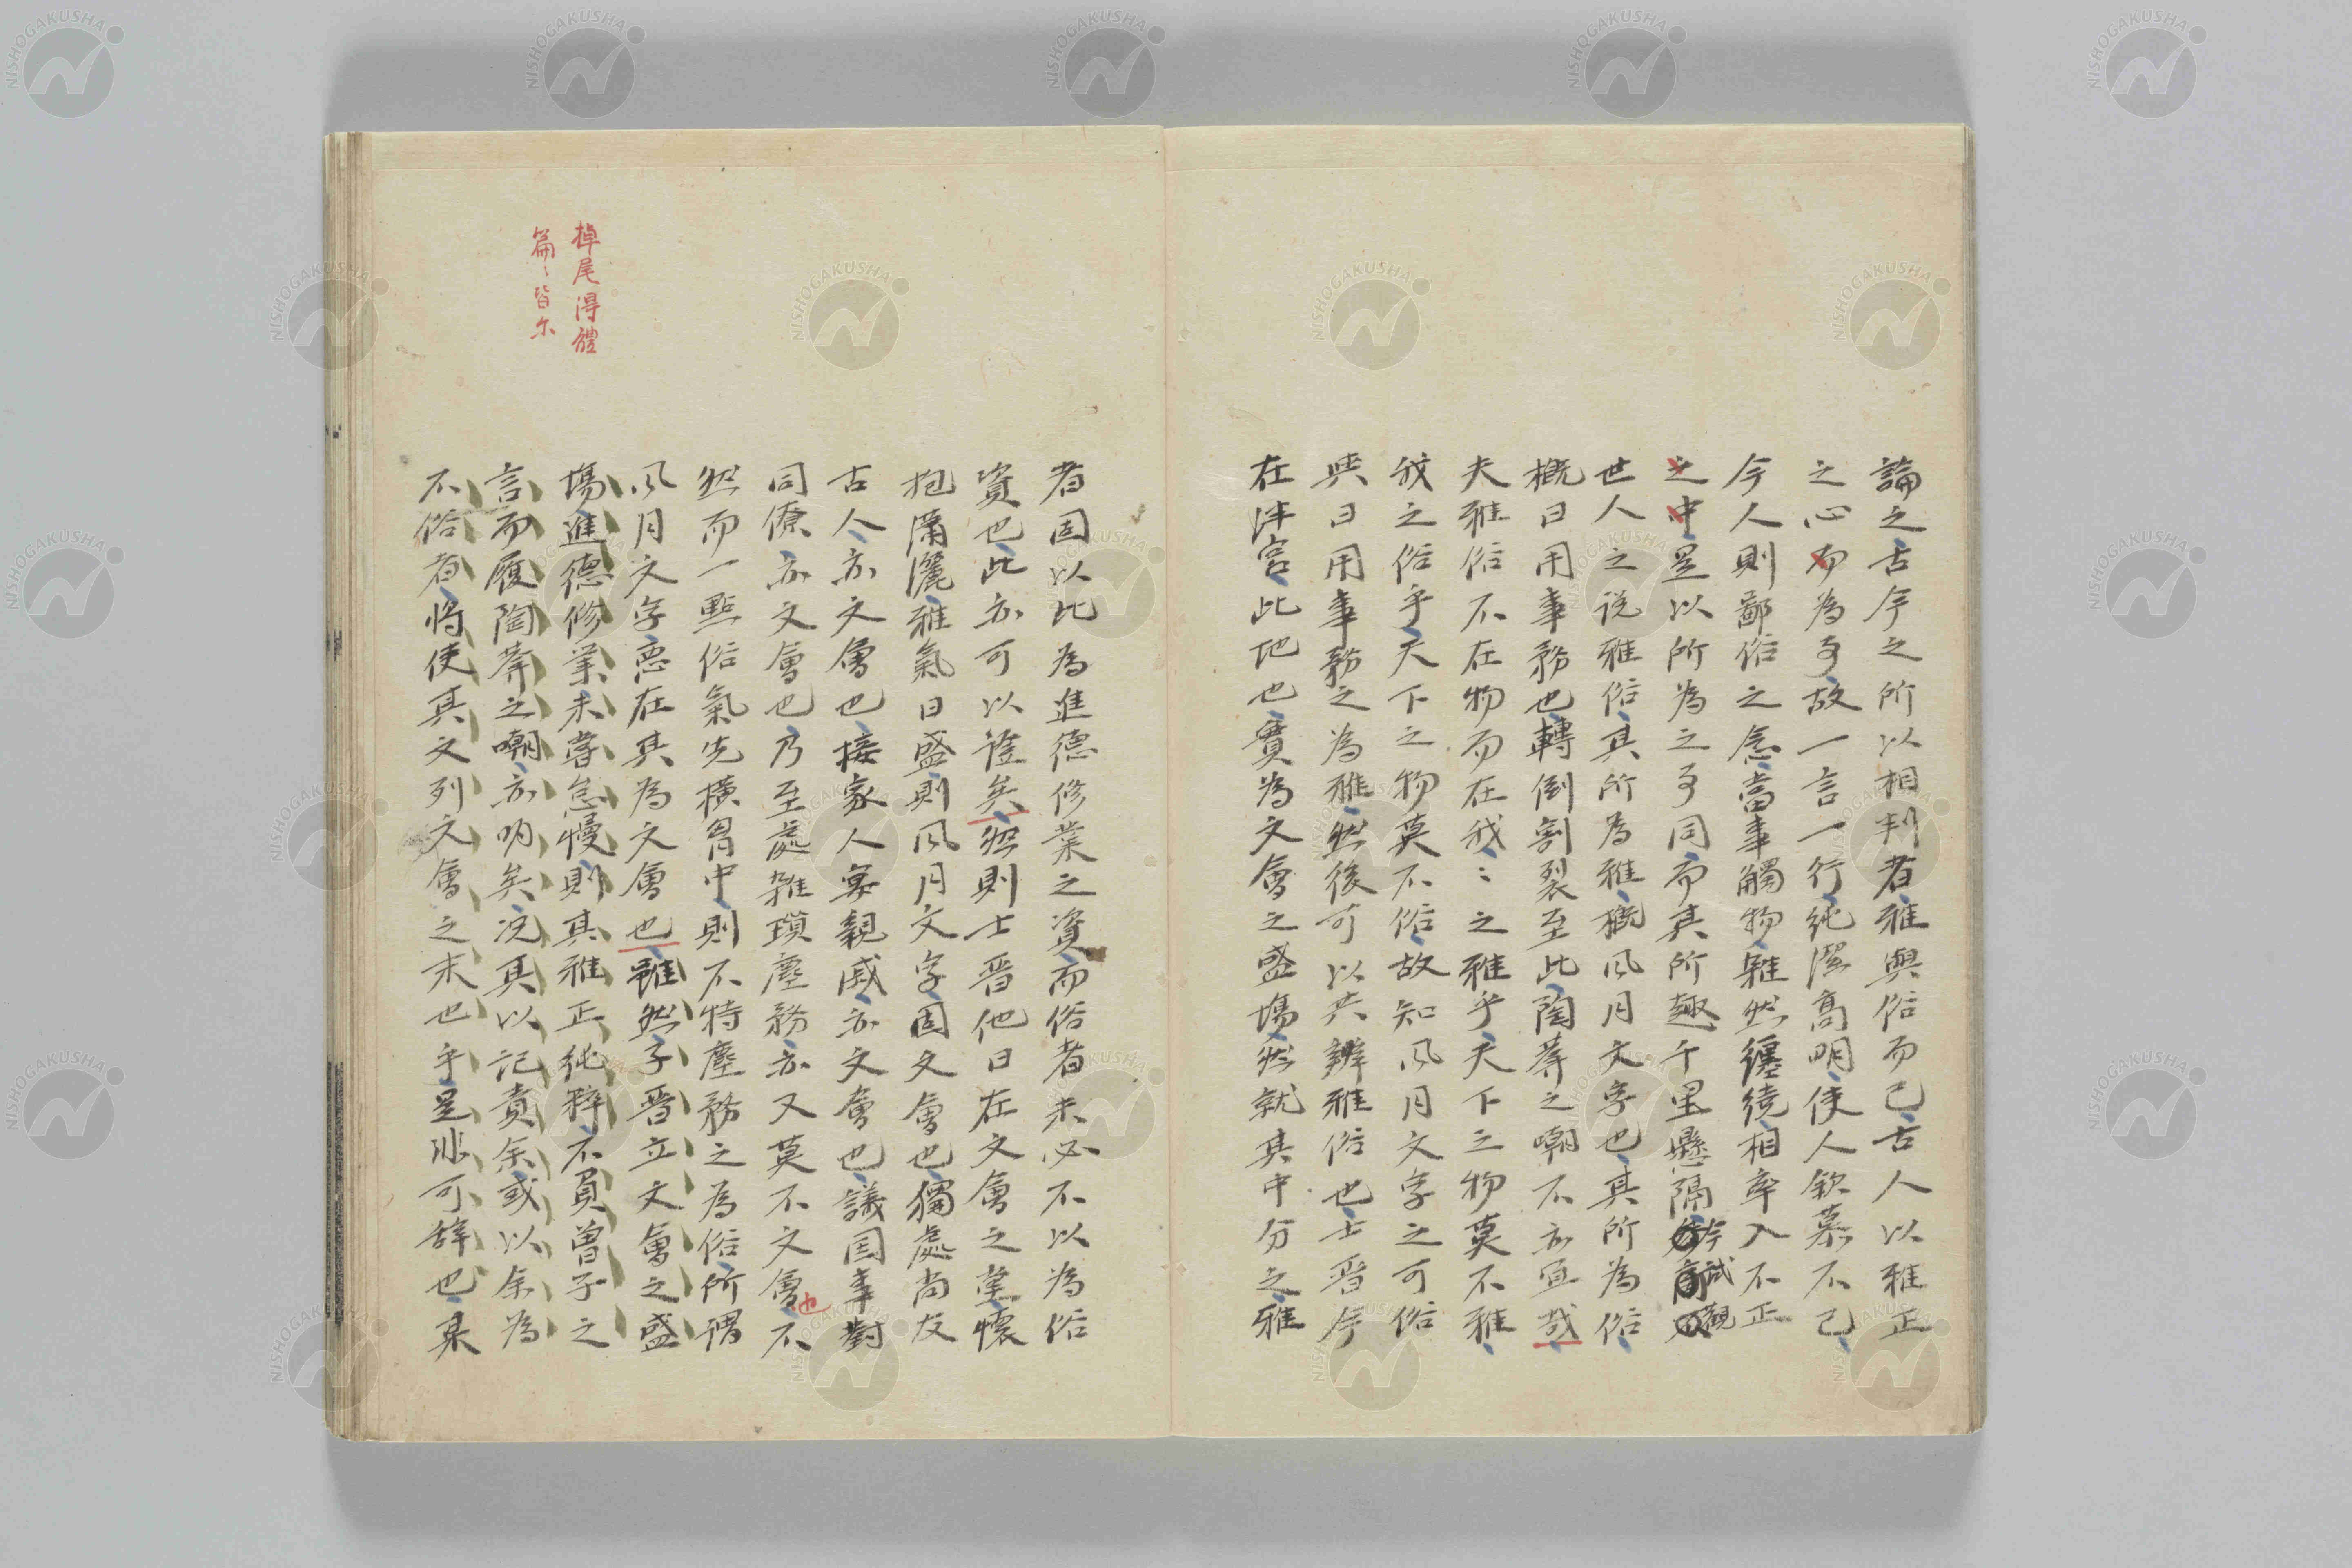 論之古今之所以相判者雅與俗而已古人以雅正
之心而為事故一言一行純潔高明使人欽慕不已
今人則鄙俗之念當事觸物雜然纏繞相率入不正
之中是以所為之事同而其所趣千里懸隔今試觀
世人之説雅俗其所為雅概風月文字也其所為俗
概日用事務也轉倒割裂至此陶莽之嘲不亦宜哉
夫雅俗不在物而在我〻之雅乎天下之物莫不雅
我之俗乎天下之物莫不俗故知風月文字之可俗
與日用事務之為雅然後可以共辨雅俗也士晋今
在泮宮此地也實為文會之盛場然就其中分之雅
者固以此為進德修業之資而俗者未必不以為俗
資也此亦可以謹矣然則士晋他日在文會之莚懐
抱瀟灑雅氣日盛則風月文字固文會也獨處尚友
古人亦文會也接家人寡親戚亦文會也議国事對
同僚亦文會也乃至處雑瑣塵務亦又莫不文會也不
然而一點俗氣先横胷中則不特塵務之為俗所謂
風月文字惡在其為文會也雖然子晋立文會之盛
場進德修業未甞怠慢則其雅正純粹不負曽子之
言而履陶莽之嘲亦明矣况其以記責余或以余為
不俗者将使其文列文會之末也乎是非可辞也某
掉尾得體
篇〻皆尓
NISHOGAKUSHA